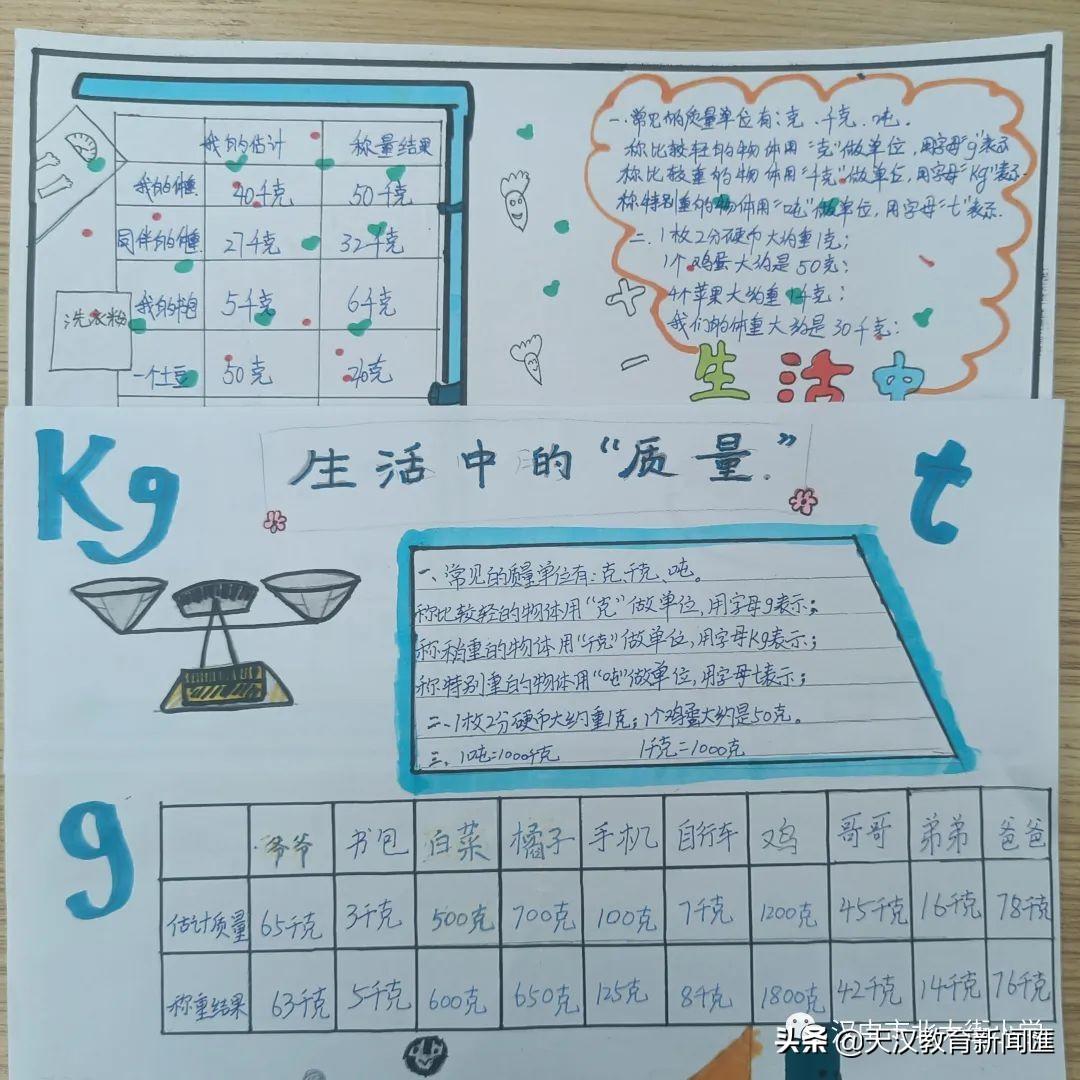 我的估计 称量结果
我的体重 40千克 50千克
同伴的体重 27千克 32千克
我的书包 5千克 6千克
一个土豆 50克 20克
洗衣粉
一.常见的质量单位有:克.千克.吨.
称比较轻的物体用“克”做单位,用字母“g”表示
称比较重的物体用“千克”做单位,用字母“Kg”表示.
称特别重的物体用“吨”做单位,用字母“t”表示.
二.1枚2分硬币大约重1克;
1个鸡蛋大约是50克;
4个苹果大约重1千克;
我们的体重大约是30千克;
生活中
Kg
生活中的“质量”
t
一、常见的质量单位有:克、千克、吨。
称比较轻的物体用“克”做单位,用字母g表示;
称稍重的物体用“千克”做单位,用字母Kg表示;
称特别重的物体用“吨”做单位,用字母t表示;
二、1枚2分硬币大约重1克;1个鸡蛋大约是50克。
三、1吨=1000千克 1千克=1000克
g
爷爷 书包 白菜 橘子 手机 自行车 鸡 哥哥 弟弟 爸爸
估计质量 65千克 3千克 500克 700克 100克 7千克 1200克 45千克 16千克 78千克
称重结果 63千克 5千克 600克 650克 125克 8千克 1800克 42千克 14千克 76千克
汉中市北大街小学
头条@天汉教育新闻匯